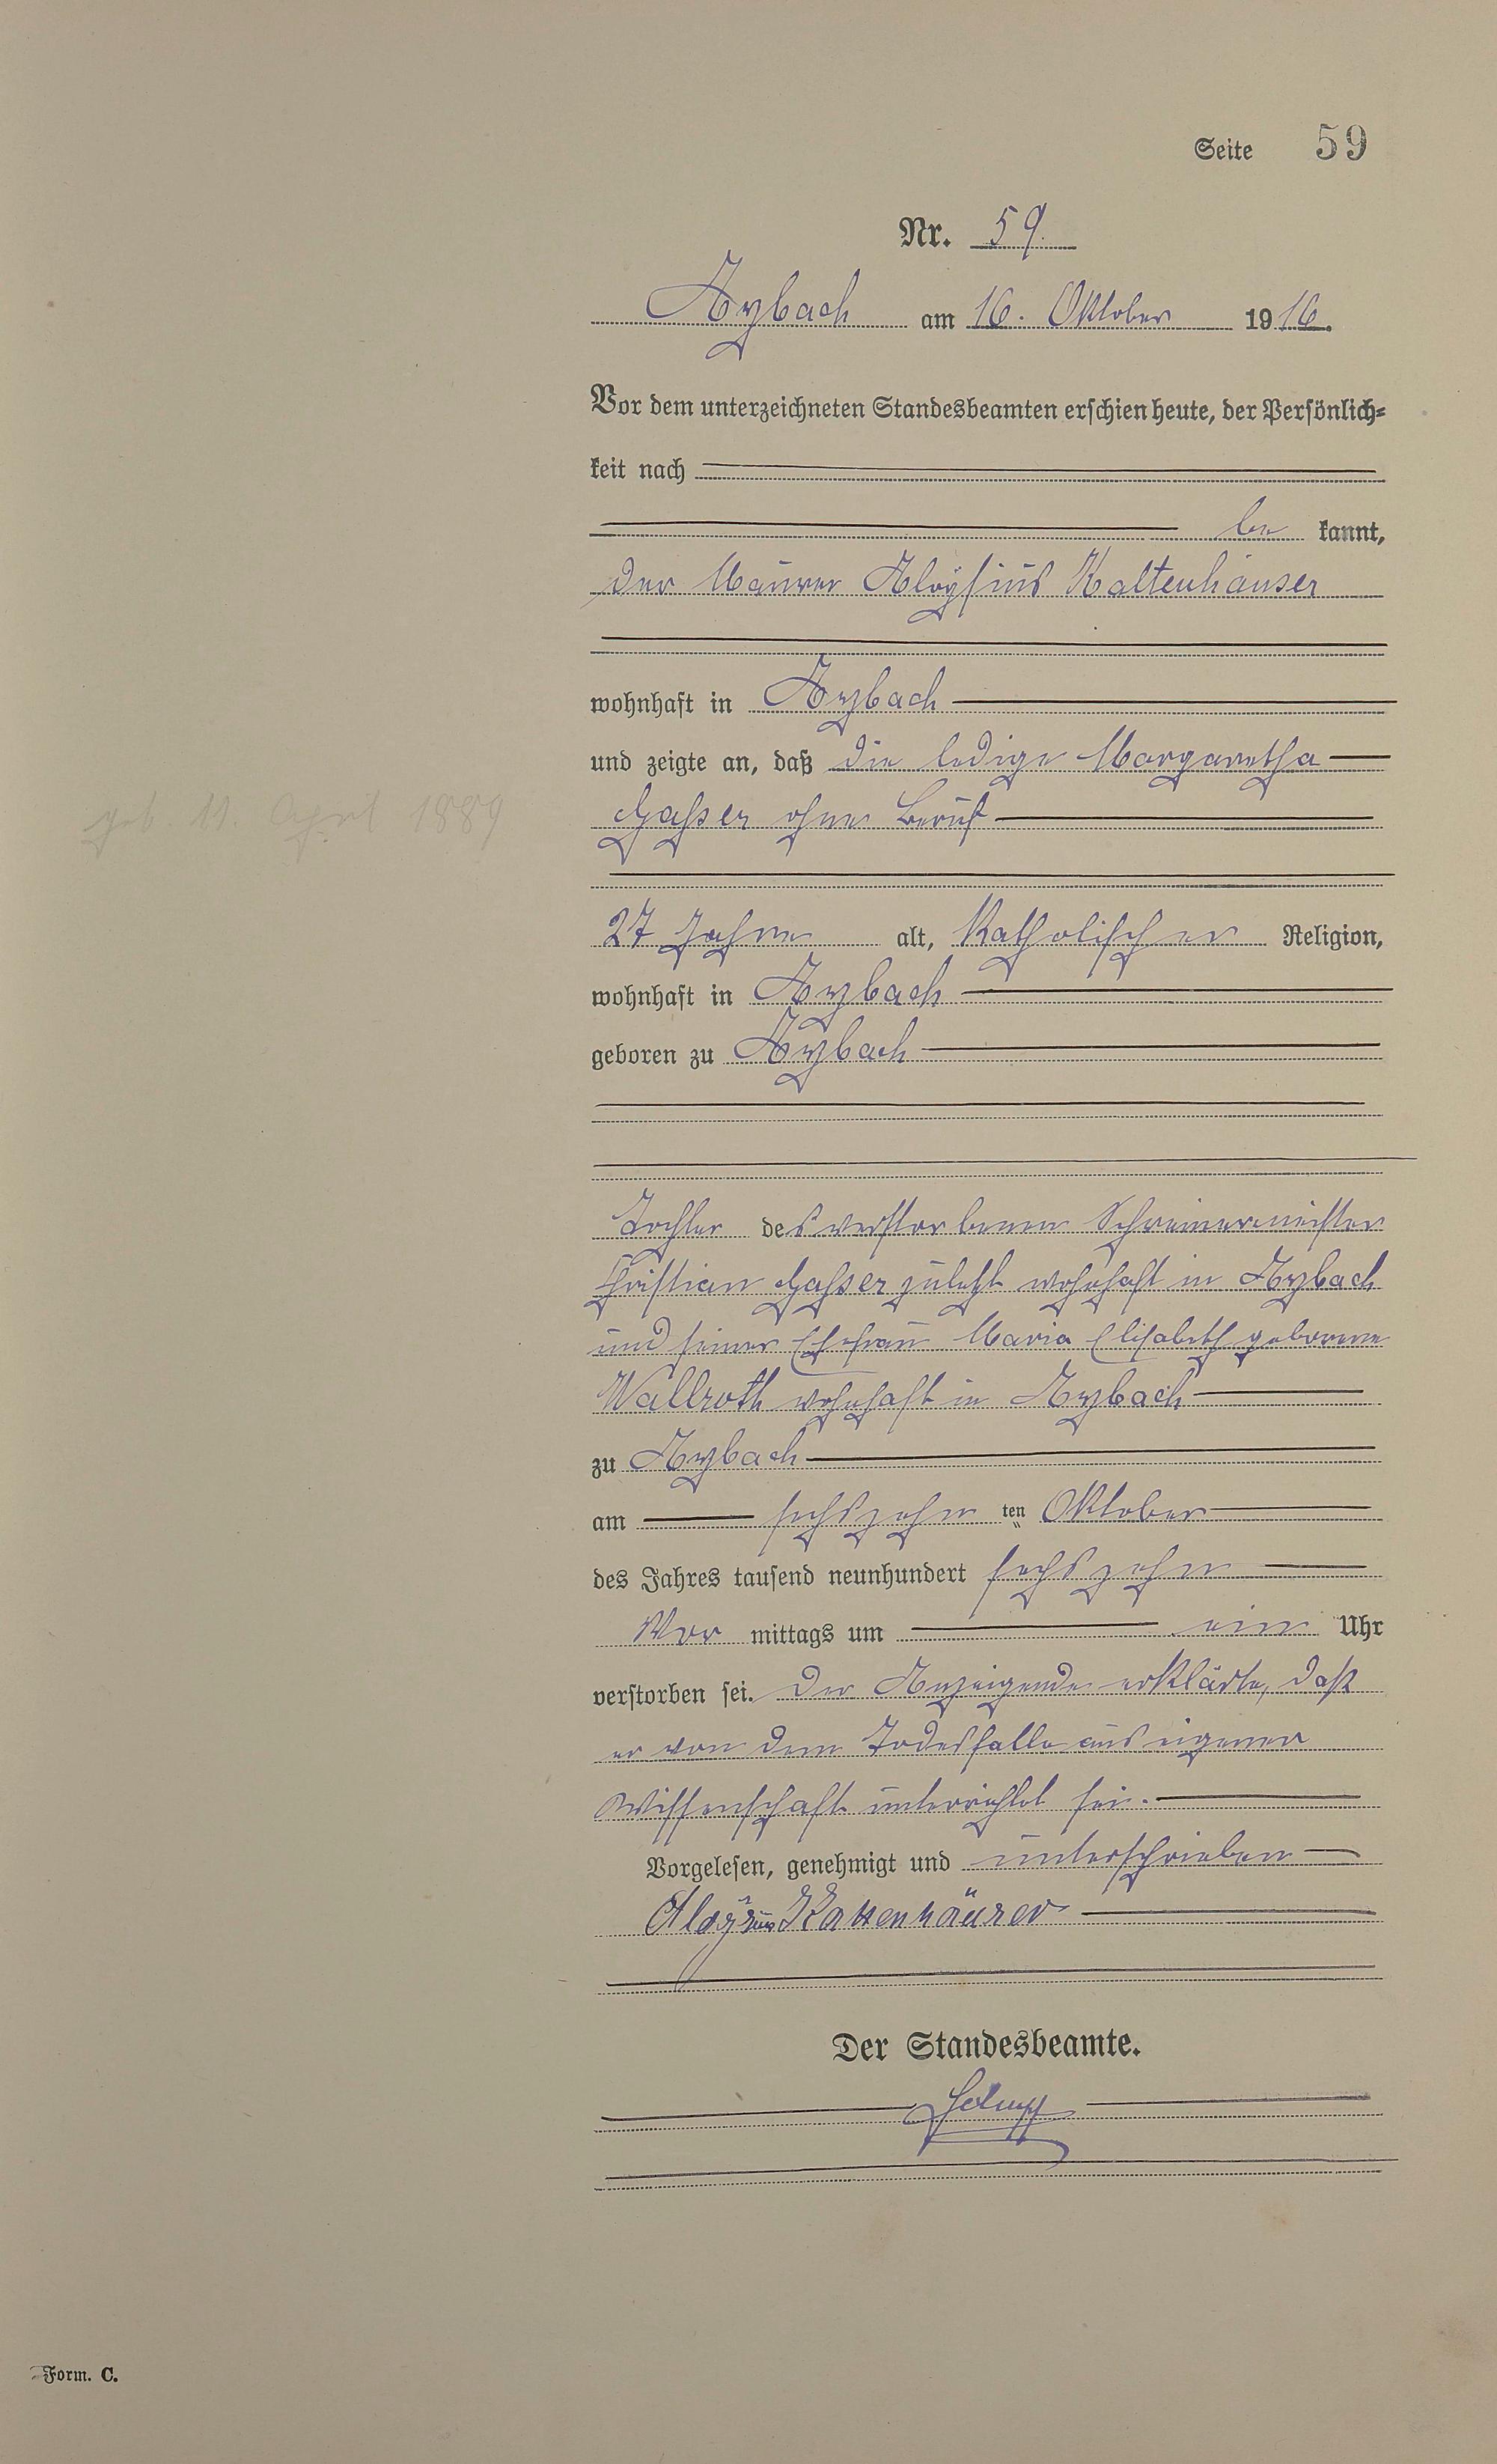 Seite 59
Nr. 59.
Asbach am 16. Oktober 1916.
Vor dem unterzeichneten Standesbeamten erschien heute, der Persönlich-
keit nach
be kannt,
der Maurer Aloÿsius Kaltenhäuser
wohnhaft in
und zeigte an, daß die ledige Margaretha
Gaßer ohne Beruf
geb 11. April 1889
27 Jahre alt, Katholischer Religion,
wohnhaft in
geboren zu
Tochter des verstorbenen Schreinermeister
Christian Gaßer zuletzt wohnhaft in
und seiner Ehefrau Maria Elisabeth geborene
Wallroth wohnhaft in
zu
am sechszehn ten Oktober
des Jahres tausend neunhundert sechszehn
Vor mittags um ein Uhr
verstorben sei. Der Anzeigende erklärte, daß
er von dem Todesfalle aus eigener
Wissenschaft unterrichtet sei.
Vorgelesen, genehmigt und unterschrieben
Aloÿsius Kaltenhäuser
Der Standesbeamte.
Form. C.